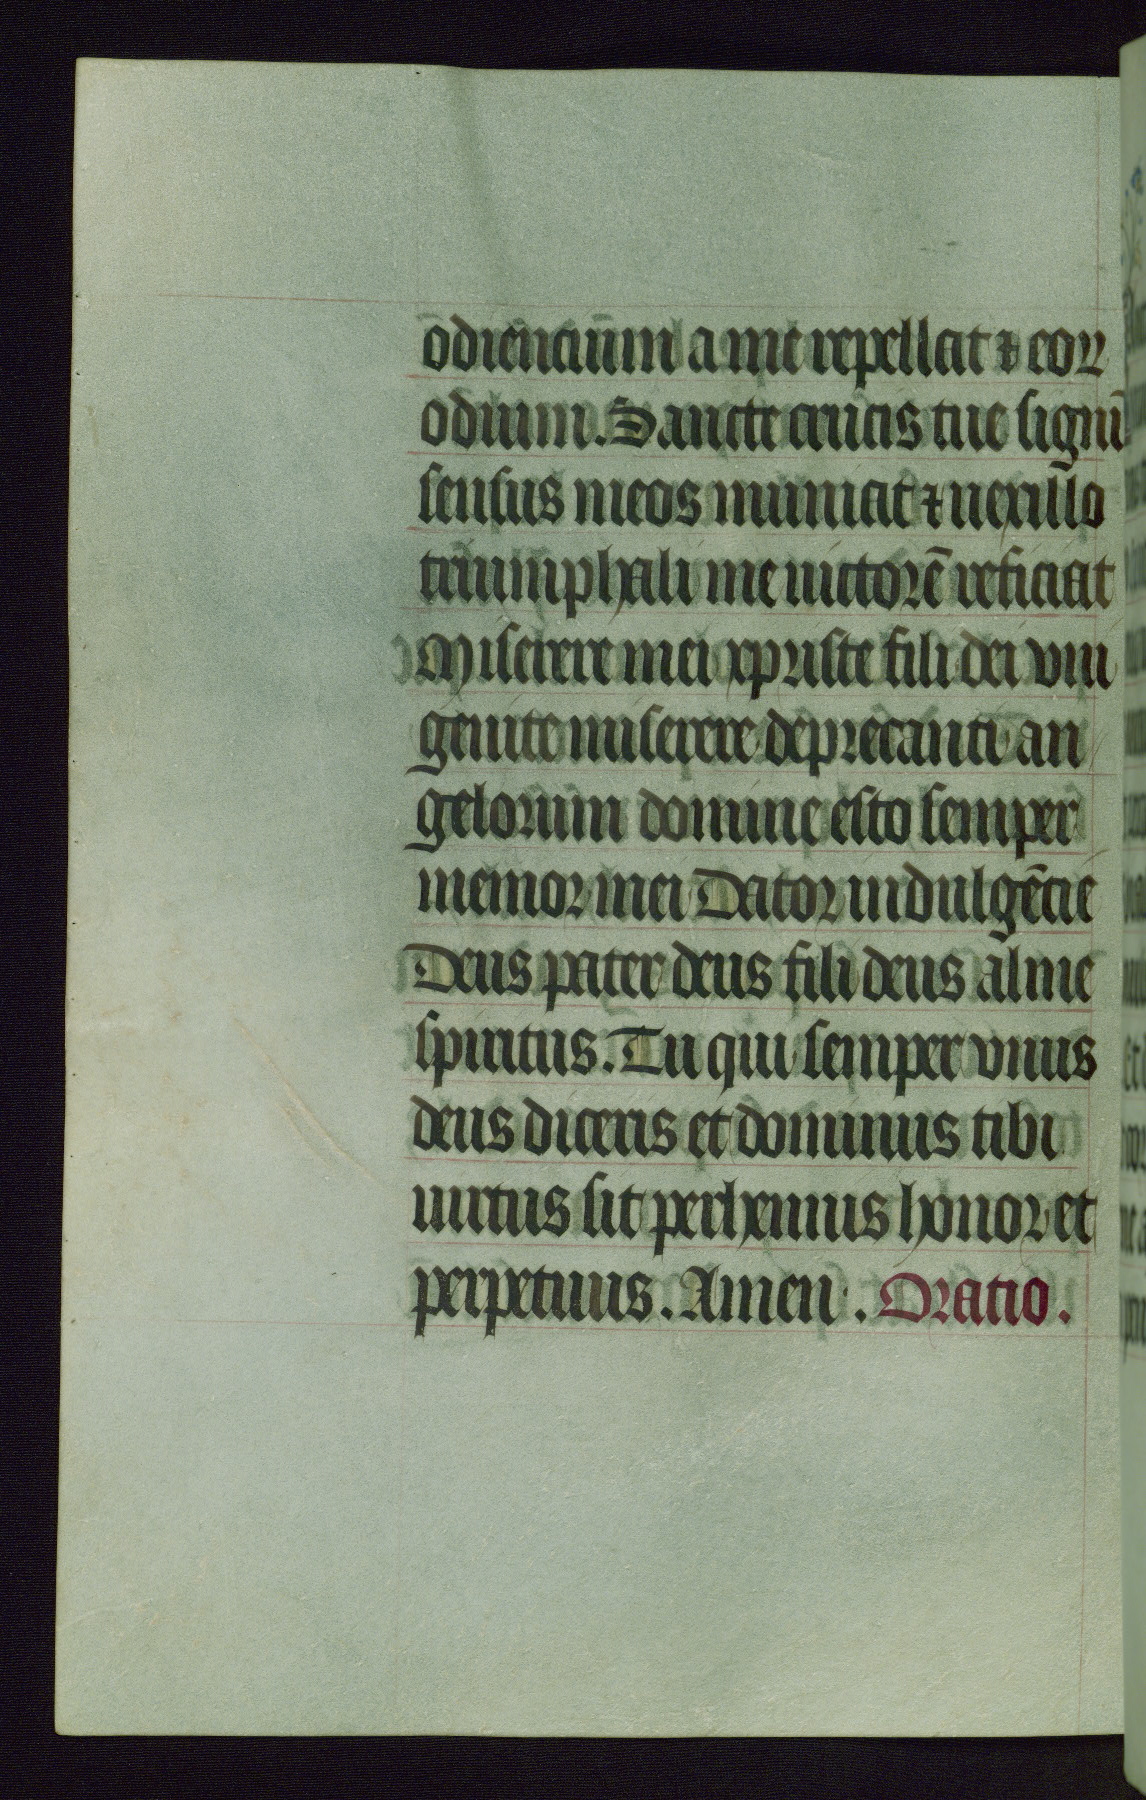 odiencium a me repellat ⁊ eoꝝ
odium. Sancte crucis tue signū
sensus meos muniat ⁊ uexillo
triumphali me uictorē reficiat
Miserere mei xpriste fili dei viui
genite miserere deprecanti an
gelorum domine esto semper
memor mei Dator indulgēcie
Deus pater deus fili deus alme
spiritus. Tu qui semper vnus
deus diceris et dominus tibi
uirtus sit perhennius honor et
perpetuus. Amen. Oratio.